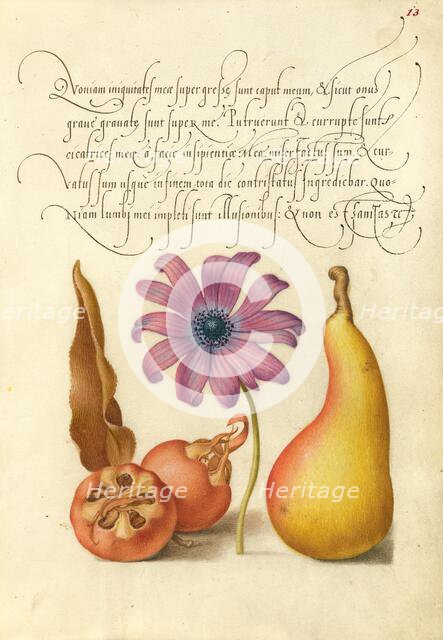 13
Quoniam iniquitates meæ super gressę sunt caput meum, & sicut onus
grave gravatę sunt super me. Putruerunt & corruptę sunt
cicatrices meæ a facie insipientiæ Meæ. miser factus sum & cur-
vatus sum usque in finem tota die contristatus Ingrediebar. Quo-
Niam lumbi mei impleti sunt illusionibus: & non est sanitas &c
Heritage Heritage
Heritage Heritage
Heritage Heritage